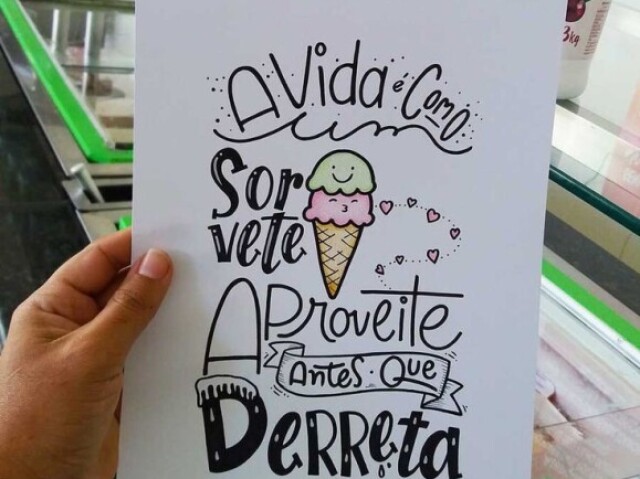 A Vida é Como
um
Sor
vete
Aproveite
Antes. Que
Derreta
3kg